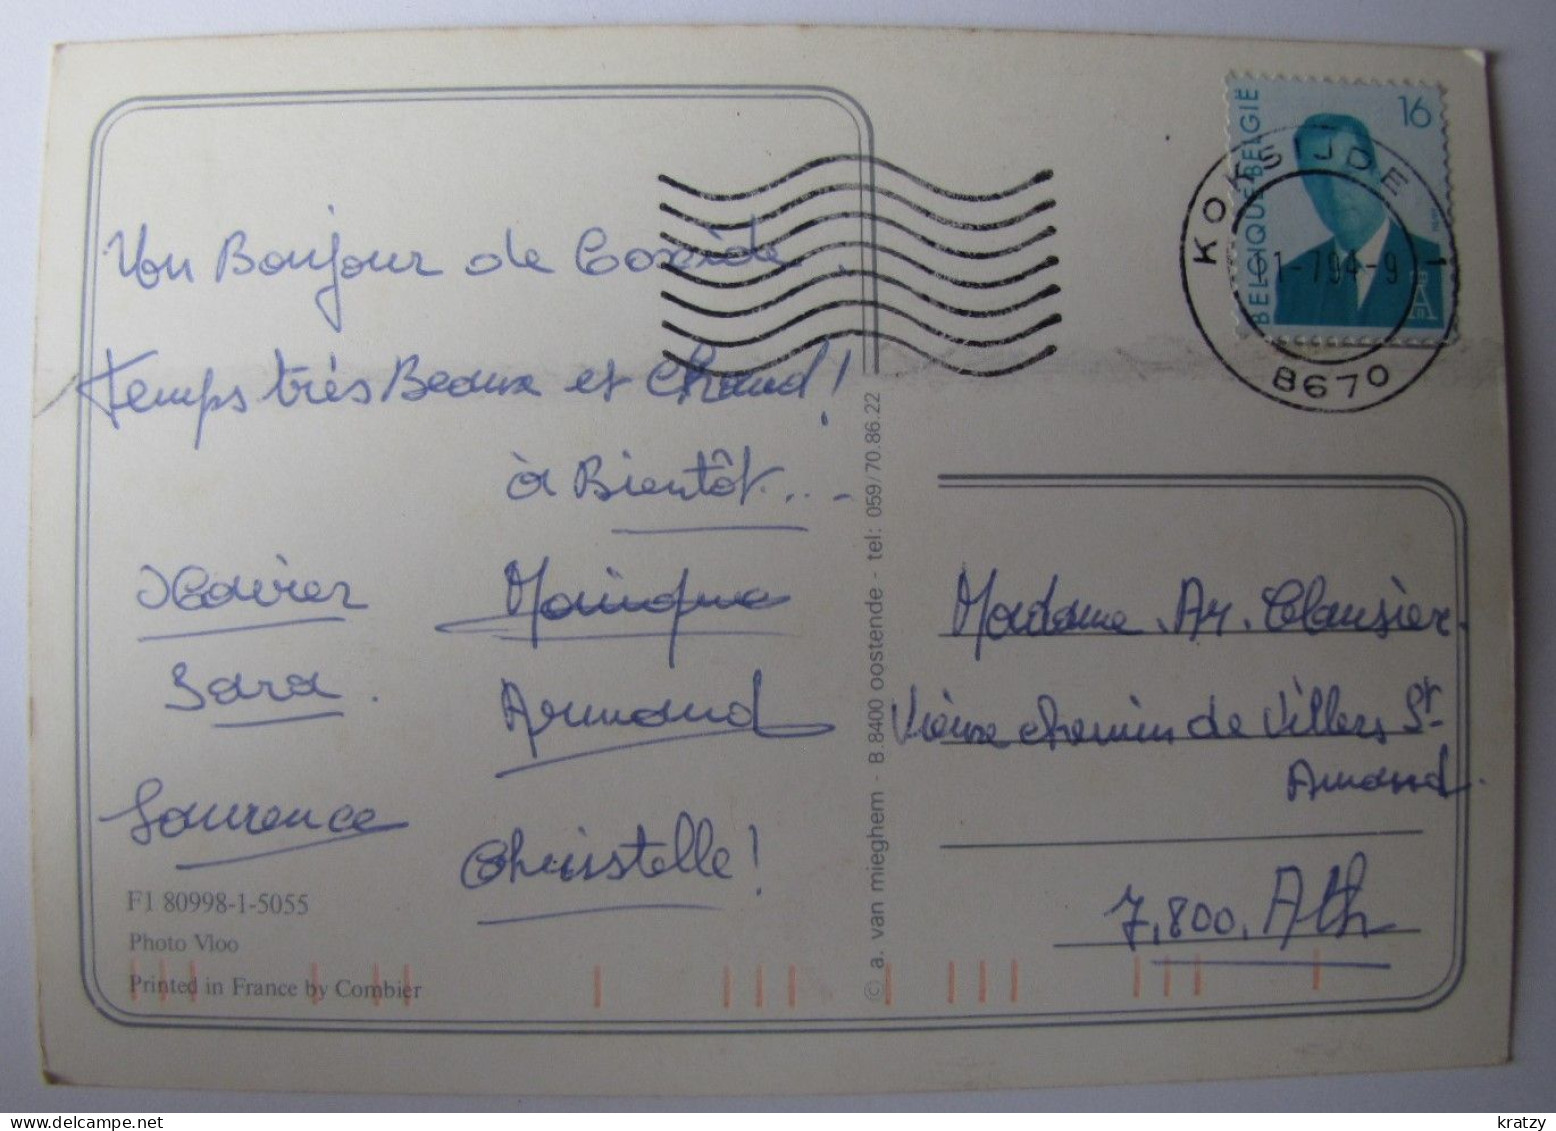 Un Bonjour de Coxide,
Temps très Beaux et Chaud!
à Bientôt...
Xavier
Sara.
Laurence
Armand
Christelle!
F1 80998-1-5055
Photo Vloo
Printed in France by Combier
© a. van mieghem - B.8400 oostende - tel: 059/70.86.22
BELGIQUE BELGIË
16
KOKSIJDE 1
-1-7 94-9
8670
Madame. Ar. Clausier.
Vieux chemin de Villers St
Amand.
7.800. Ath
kratzy